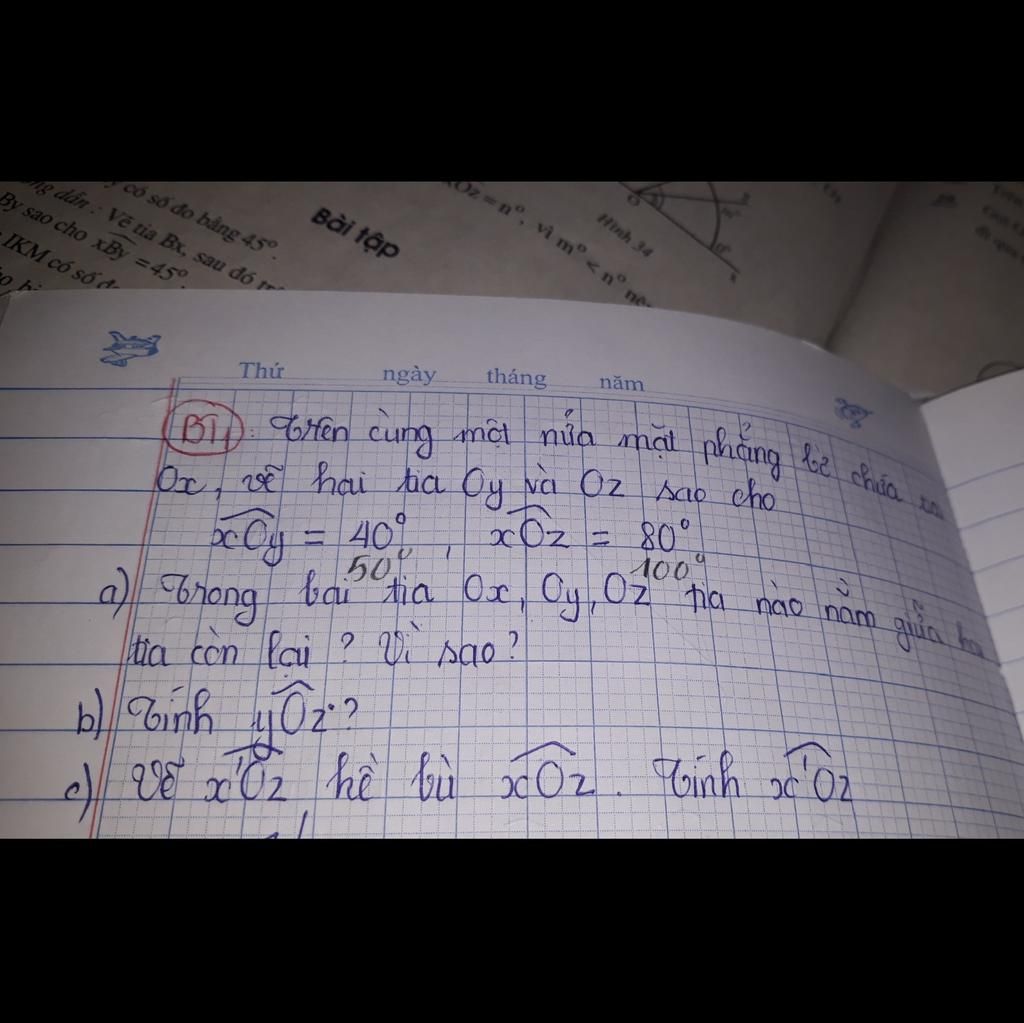 có số đo bằng 45°.
dẫn : Vẽ tia Bx, sau đó
By sao cho xBy = 45°.
IKM có số đ
Bài tập
Oz = n°, vì m° < n° nê
Hình 34
O
Thứ ngày tháng năm
BT1: Trên cùng một nửa mặt phẳng bờ chứa
Ox, vẽ hai tia Oy và Oz sao cho
xOy = 40°, xOz = 80°
50° 100°
a) Trong bai tia Ox, Oy, Oz tia nào nằm giữa
tia còn lại? Vì sao?
b) Tính yOz?
c) Vẽ x'Oz kề bù xOz. Tính x'Oz